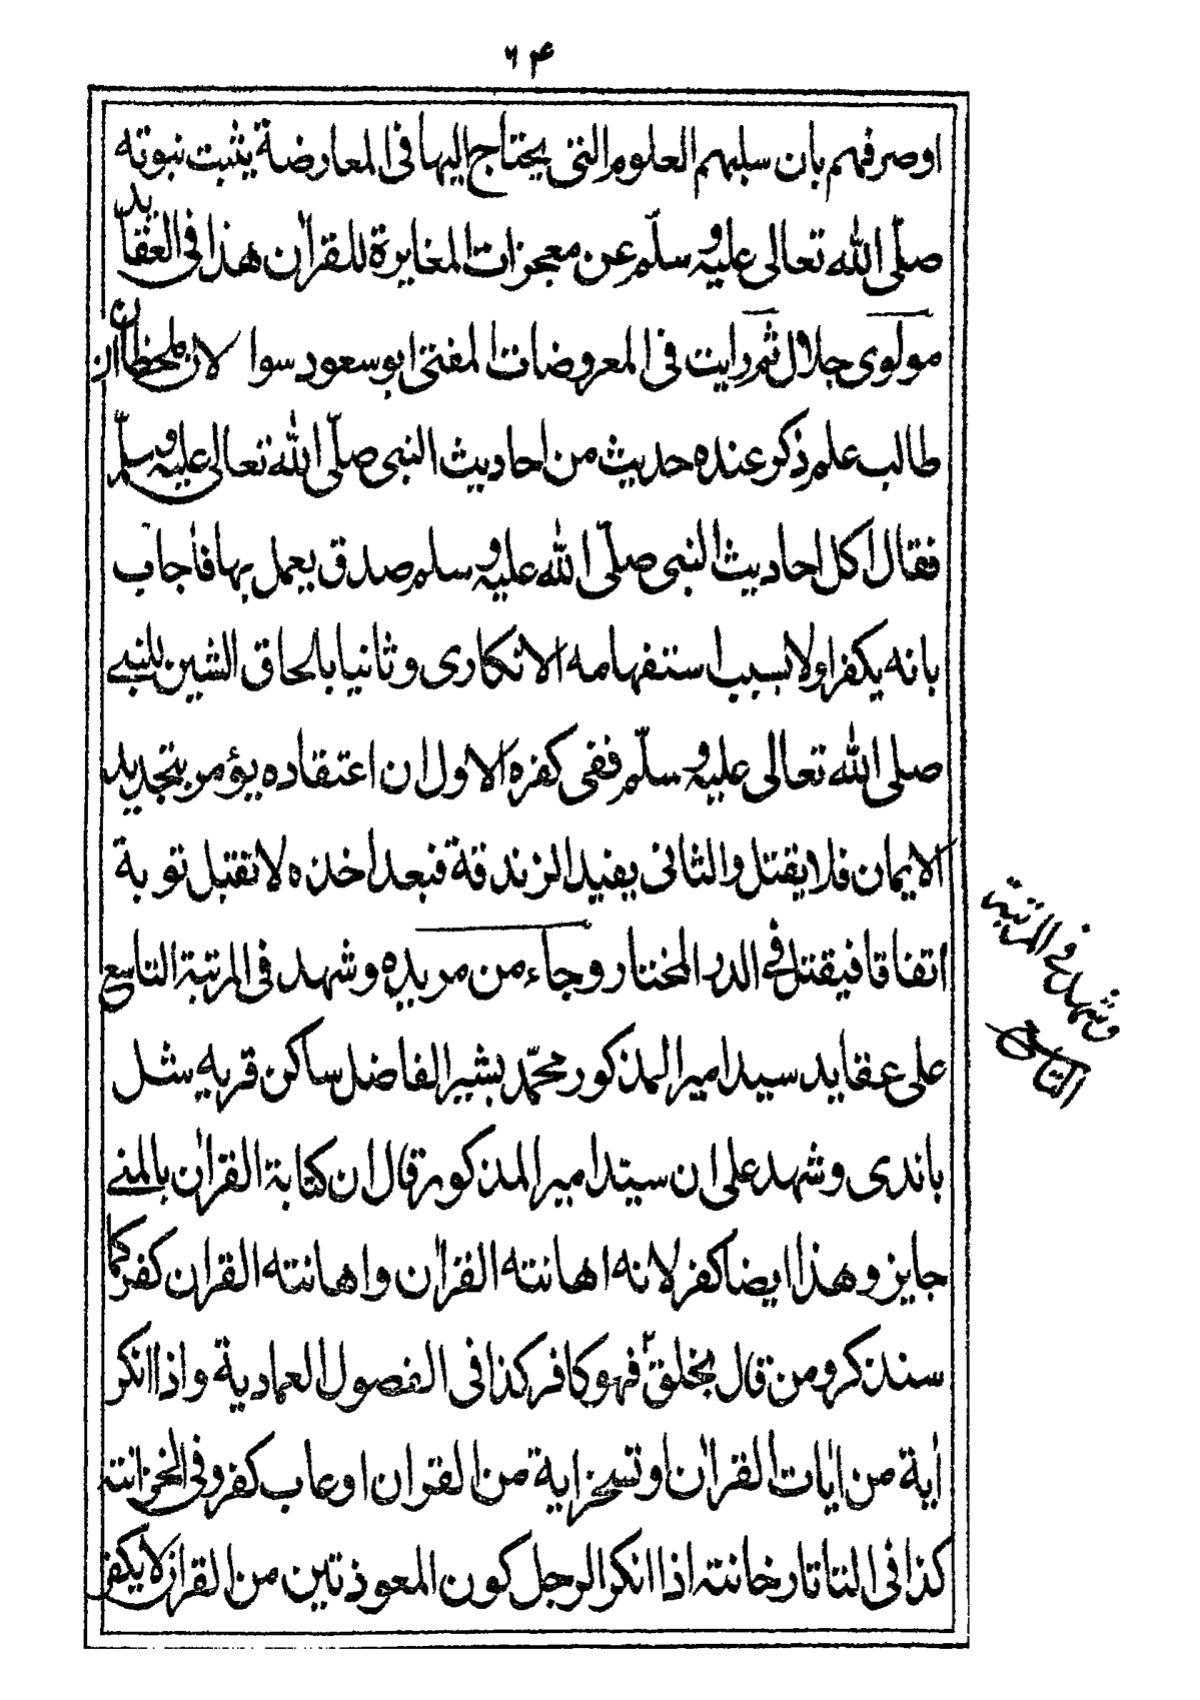 ۶۴
اوصرفهم بان سلبهم العلوم التى يحتاج اليها فى المعارضة يثبت نبوته
صلّى الله تعالى عليه و سلّم عن معجزات المغايرة للقرآن هذا فى العقايد
مولوى جلال ثم رايت فى المعروضات المفتى ابو سعود سوا لان ملخظان ان
طالب علم ذكر عنده حديث من احاديث النبى صلّى الله تعالى عليه و سلّم
فقال اكل احاديث النبى صلّى الله عليه و سلم صدق يعمل بها فاجاب
بانه يكفر اولا بسبب استفهامه الانكارى و ثانيا بالحاق الشين للنبى
صلى الله تعالى عليه و سلّم ففى كفره الاول ان اعتقاده يؤمر بتجديد
الايمان فلا يقتل و الثانى يفيد الزندقة فبعد اخذه لا تقبل توبة
اتفاقا فيقتل فى الدر المختار و جاء من مريده و شهد فى المرتبة التاسع
على عقايد سيد امير المذكور محمّد بشير الفاضل ساكن قريه شل
باندى و شهد على ان سيّد امير المذكور قال ان كتابة القرآن بالمنى
جايز و هذا ايضا كفر لانه اهانته القرآن و اهانته القران كفر كما
سنذكر و من قال بخلق فهو كافر كذا فى الفصول العمادية و اذا انكر
اٰية من اٰيات القرآن او تسخر اية من القران او عاب كفر و فى الخزانته
كذا فى التاتارخانته اذا انكر الرجل كون المعوذتين من القران لا يكفر
و شهد فى المرتبة
التاسع